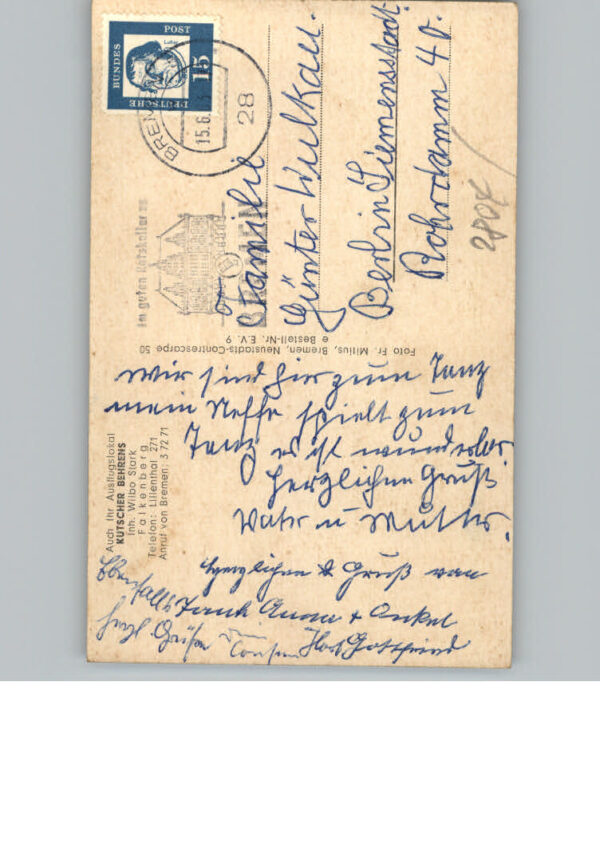 DEUTSCHE
BUNDES
POST
15
BREMEN
15.6.
28
Im guten Ratskeller zu
BREMEN
Familie
Günter Wulkau.
Berlin Siemensstadt.
Rohrdamm 40.
280€
Foto Fr. Mitius, Bremen, Neustadts-Contrescarpe 50
e Bestell-Nr. E.V. 9
Auch Ihr Ausflugslokal
KUTSCHER BEHRENS
Inh. Wilbo Stark
Falkenberg
Telefon: Lilienthal 271
Anruf von Bremen: 3 72 71
Wir sind hier zum Tanz
mein Neffe spielt zum
Tanz es ist wunderbar.
Herzlichen Gruß
Vater u Mutter.
Herzlichen Gruß von
Tante Anna + Onkel
Gottfried
Ebenfalls
herzl Grüße